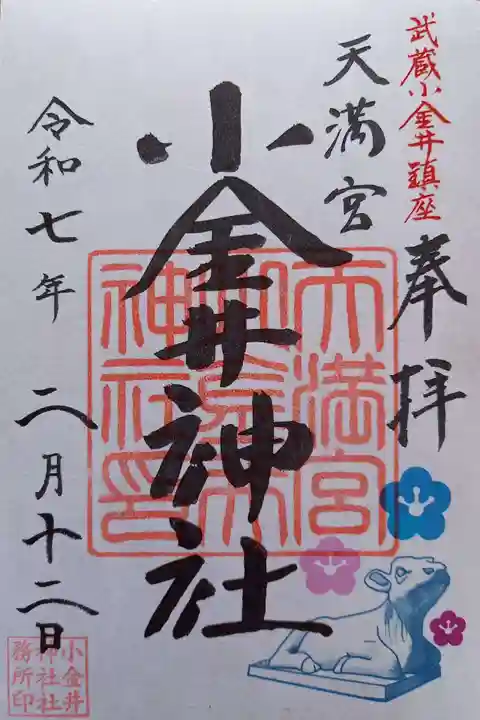 武蔵小金井鎮座
奉拝
天満宮
小金井神社
令和七年 二月十二日
天満宮
小金井
神社印
小金井
神社社
務所印